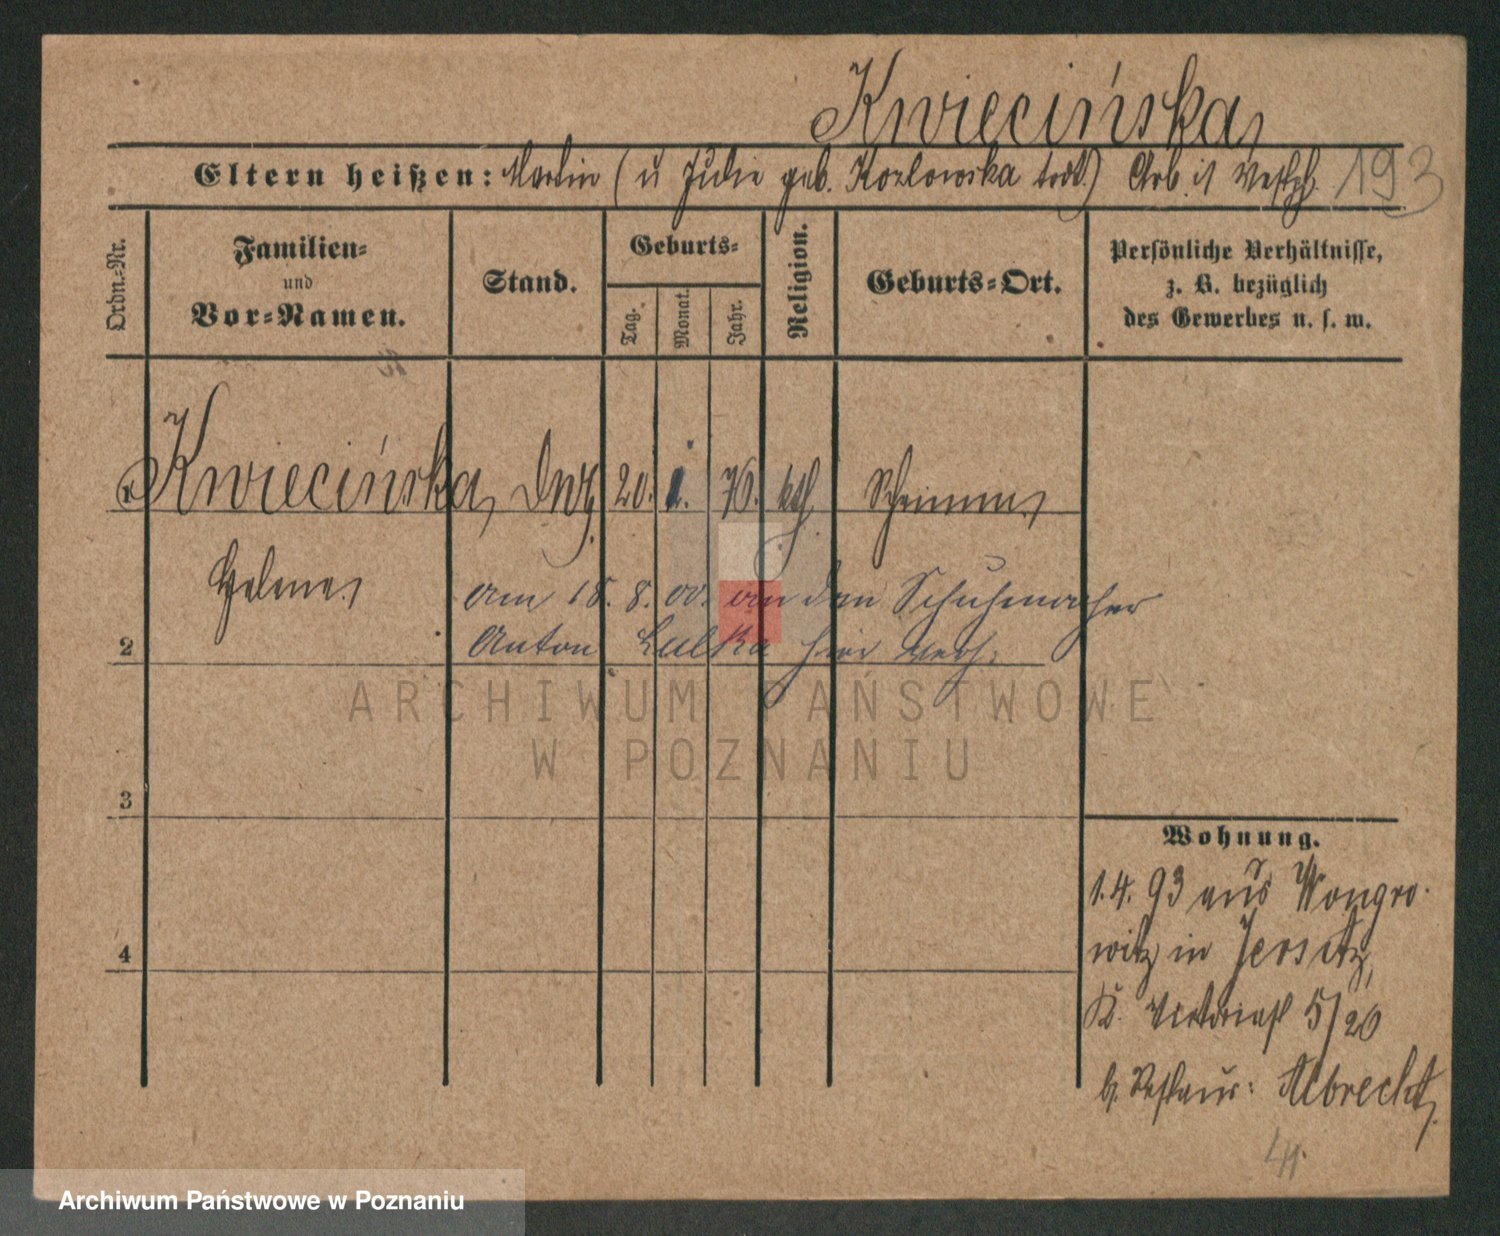 Kwiecińska,
Eltern heißen: Martin (u Julie geb. Kozlowska todt.) Arb. i/ Westph. 193
Ordn.-Nr.
Familien-
und
Vor-Namen.
Stand.
Geburts-
Tag.
Monat.
Jahr.
Religion.
Geburts-Ort.
Persönliche Verhältnisse,
z. B. bezüglich
des Gewerbes u. s. w.
1 Kwiecińska, 20. 76. kth.
Helene,
am 18. 8. 00. an den Schuhmacher
2 Anton Lulka hier verh.
ARCHIWUM PAŃSTWOWE
W POZNANIU
3
4
Wohnung.
1.4.93 aus Wongro-
witz in Jersitz,
K. Victoriast 5/20
b. Restaur: Albrecht,
Archiwum Państwowe w Poznaniu